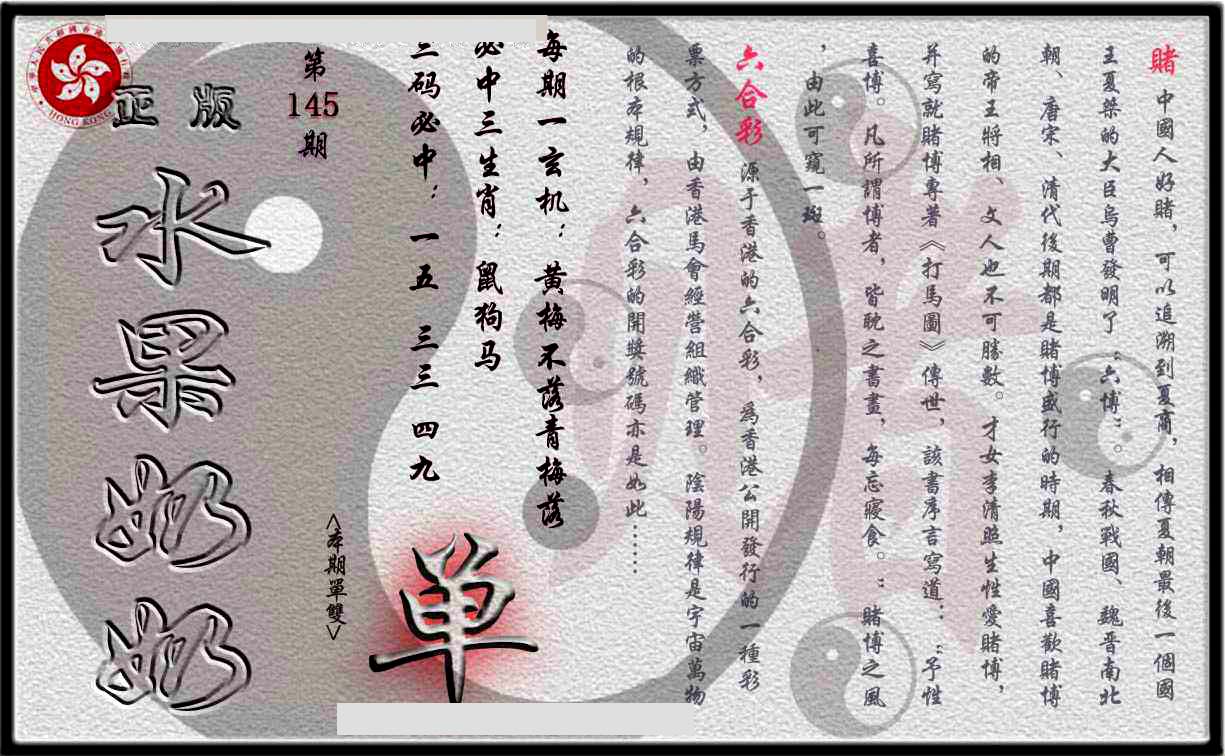 賭 中國人好賭，可以追溯到夏商，相傳夏朝最後一個國
王夏桀的大臣烏曹發明了“六博”。春秋戰國、魏晋南北
朝、唐宋、清代後期都是賭博盛行的時期，中國喜歡賭博
的帝王將相、文人也不可勝數。才女李清照生性愛賭博，
并寫就賭博專著《打馬圖》傳世，該書序言寫道：“予性
喜博。凡所謂博者，皆耽之書畫，每忘寢食。”賭博之風
，由此可窺一斑。
六合彩 源于香港的六合彩，爲香港公開發行的一種彩
票方式，由香港馬會經營組織管理。陰陽規律是宇宙萬物
的根本規律，六合彩的開獎號碼亦是如此……
每期一玄机：黄梅不落青梅落
必中三生肖：鼠狗马
三码必中：一五 三三 四九
单
<本期單雙>
第
145
期
正版
水果奶奶
HONG KONG